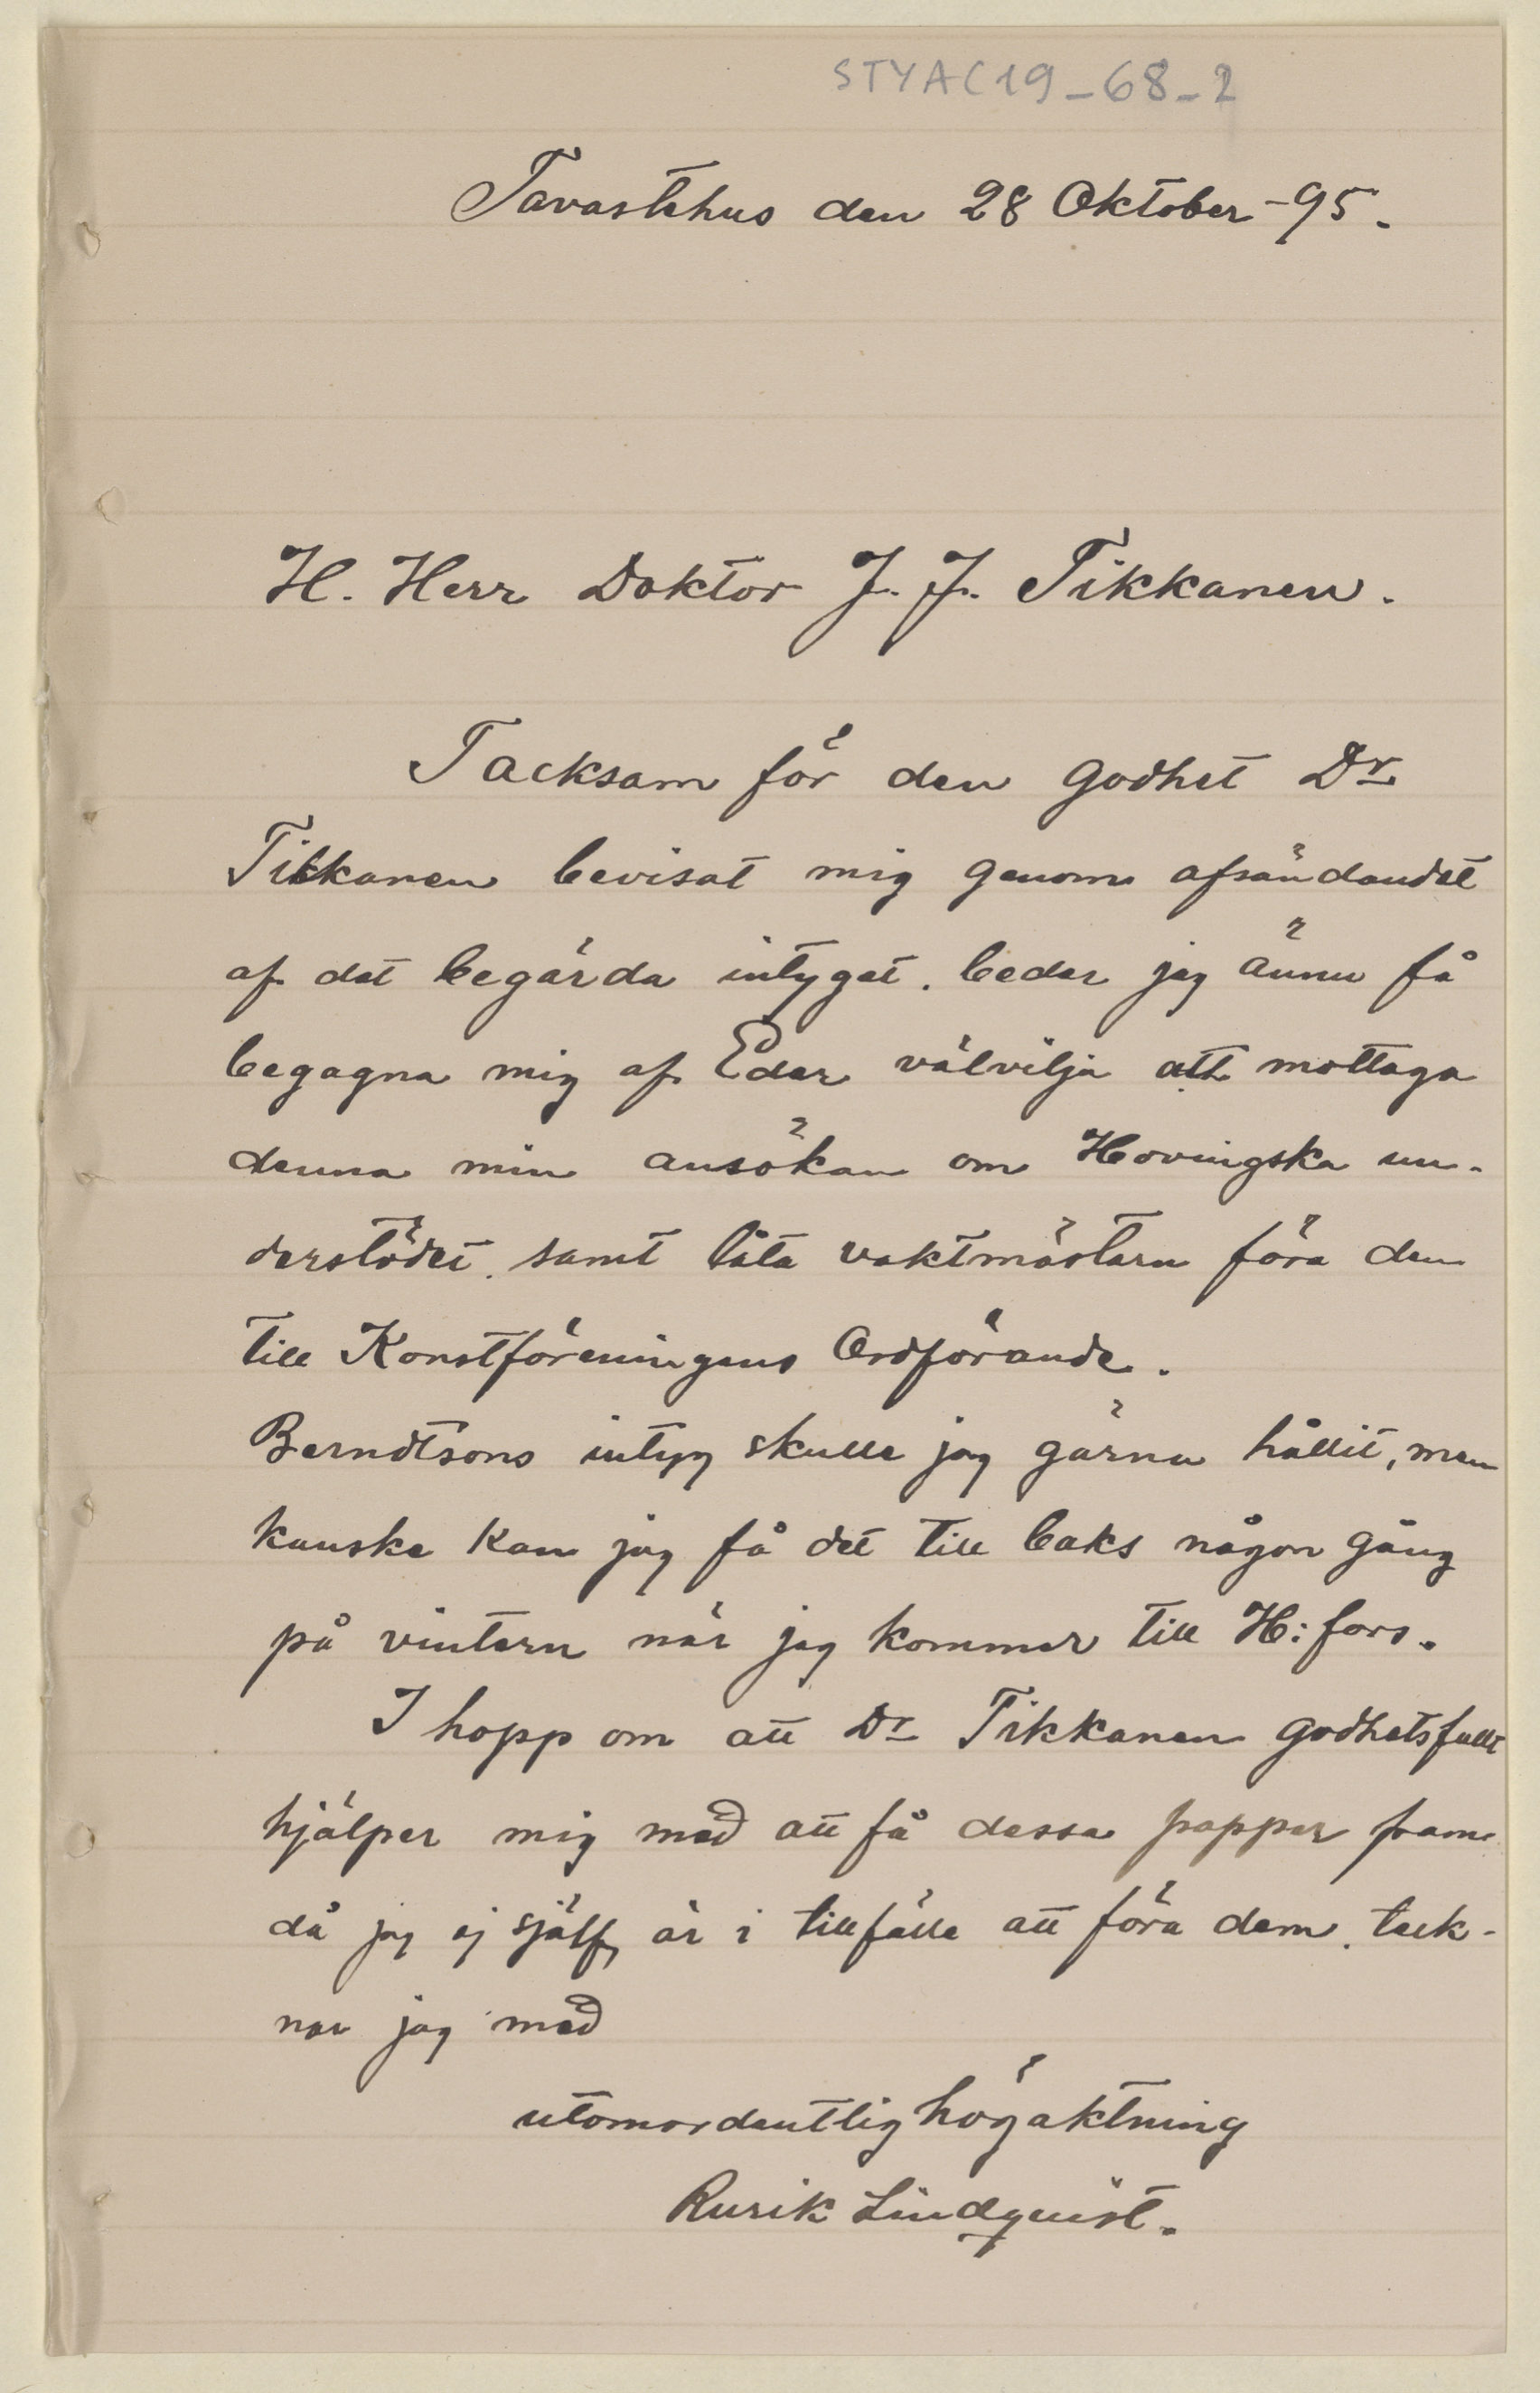 STYAC19-68-2
Tavastehus den 28 Oktober -95.
H. Herr Doktor J. J. Tikkanen.
Tacksam för den godhet Dr
Tikkanen bevisat mig genom afsändandet
af det begärda intyget, beder jag ännu få
begagna mig af Eder välvilja att mottaga
denna min ansökan om Hovingska un-
derstödet, samt låta vaktmästarn föra den
till Konstföreningens Ordförande.
Berndtsons intyg skulle jag gärna hållit, men
kanske kan jag få det till baks någon gång
på vintern när jag kommer till H:fors.
I hopp om att Dr Tikkanen godhetsfullt
hjälper mig med att få dessa papper fram
då jag ej självf är i tillfälle att föra dem, teck-
nar jag med
utomordentlig högaktning
Rurik Lindqvist.